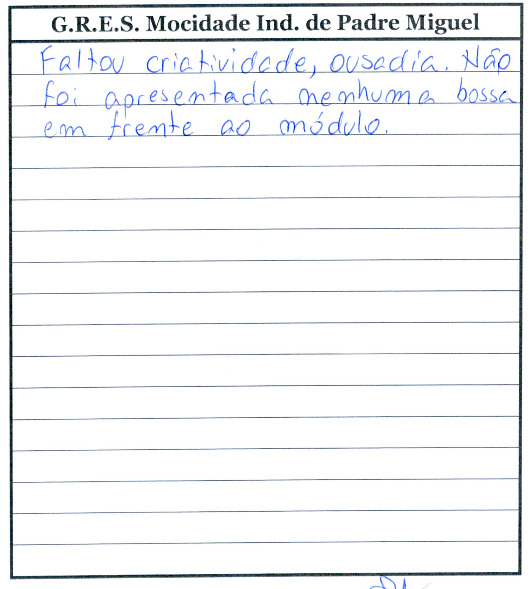 G.R.E.S. Mocidade Ind. de Padre Miguel
Faltou criatividade, ousadia. Não
foi apresentada nenhuma bossa
em frente ao módulo.